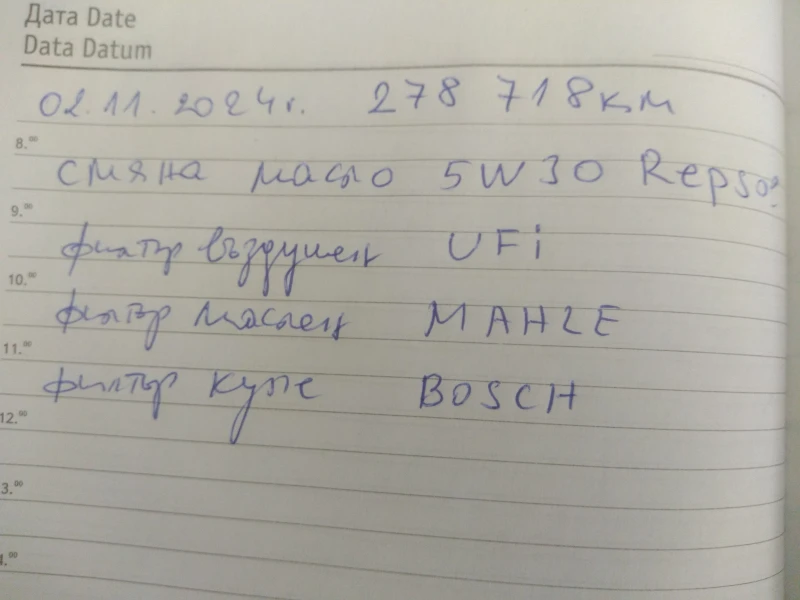 Дата Date
Data Datum
02.11.2024г. 278 718км
8.⁰⁰
смяна масло 5W30 Repsol
9.⁰⁰
филтър въздушен UFi
10.⁰⁰
филтър маслен MAHLE
11.⁰⁰
филтър купе BOSCH
12.⁰⁰
3.⁰⁰
4.⁰⁰